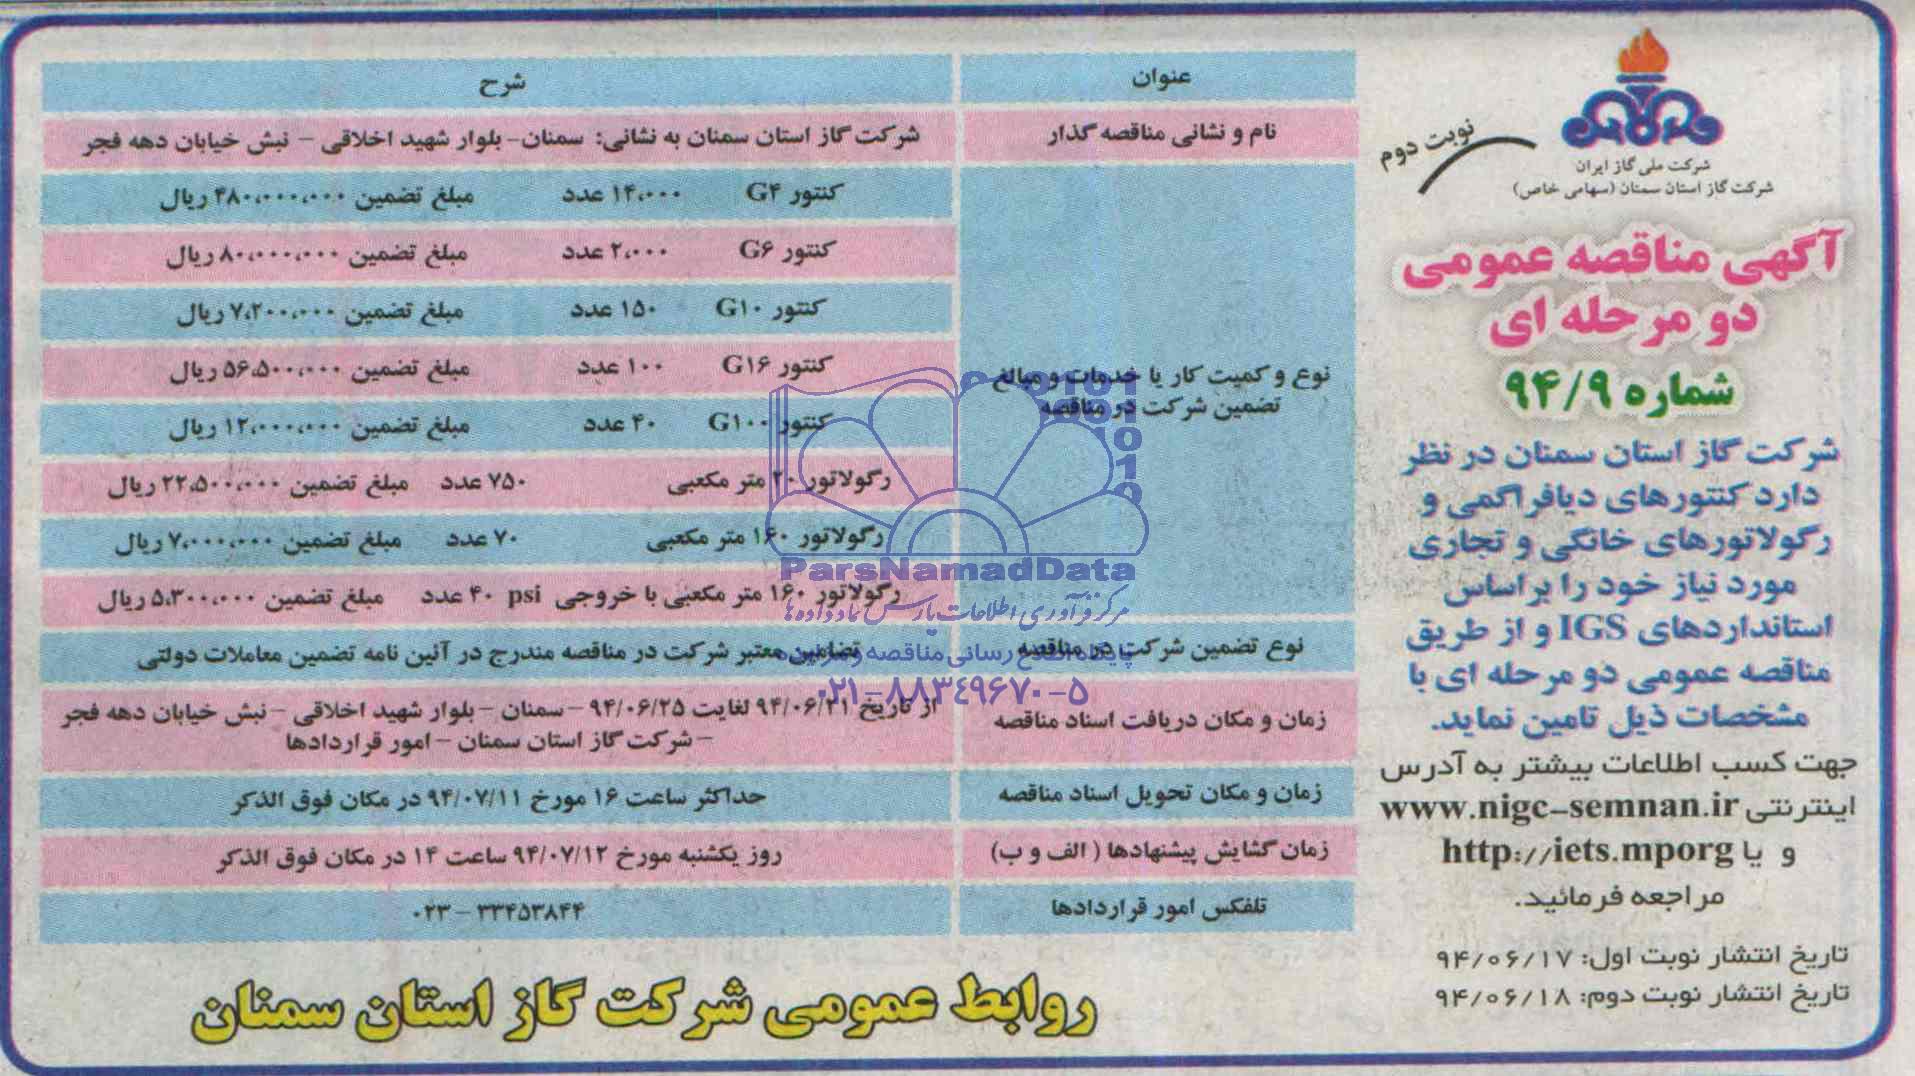 شرکت ملی گاز ایران
شرکت گاز استان سمنان (سهامی خاص)
نوبت دوم
آگهی مناقصه عمومی
دو مرحله ای
شماره ۹۴/۹
شرکت گاز استان سمنان در نظر
دارد کنتورهای دیافراگمی و
رگولاتورهای خانگی و تجاری
مورد نیاز خود را براساس
استانداردهای IGS و از طریق
مناقصه عمومی دو مرحله ای با
مشخصات ذیل تامین نماید.
جهت کسب اطلاعات بیشتر به آدرس
اینترنتی www.nigc-semnan.ir
و یا http://iets.mporg
مراجعه فرمائید.
تاریخ انتشار نوبت اول: ۹۴/۰۶/۱۷
تاریخ انتشار نوبت دوم: ۹۴/۰۶/۱۸
عنوان شرح
نام و نشانی مناقصه گذار شرکت گاز استان سمنان به نشانی: سمنان- بلوار شهید اخلاقی - نبش خیابان دهه فجر
نوع و کمیت کار یا خدمات و مبالغ
تضمین شرکت در مناقصه
کنتور G۴ ۱۴،۰۰۰ عدد مبلغ تضمین ۴۸۰،۰۰۰،۰۰۰ ریال
کنتور G۶ ۲،۰۰۰ عدد مبلغ تضمین ۸۰،۰۰۰،۰۰۰ ریال
کنتور G۱۰ ۱۵۰ عدد مبلغ تضمین ۷،۲۰۰،۰۰۰ ریال
کنتور G۱۶ ۱۰۰ عدد مبلغ تضمین ۵۶،۵۰۰،۰۰۰ ریال
کنتور G۱۰۰ ۴۰ عدد مبلغ تضمین ۱۲،۰۰۰،۰۰۰ ریال
رگولاتور ۲۰ متر مکعبی ۷۵۰ عدد مبلغ تضمین ۲۲،۵۰۰،۰۰۰ ریال
رگولاتور ۱۶۰ متر مکعبی ۷۰ عدد مبلغ تضمین ۷،۰۰۰،۰۰۰ ریال
رگولاتور ۱۶۰ متر مکعبی با خروجی psi ۴۰ عدد مبلغ تضمین ۵،۳۰۰،۰۰۰ ریال
نوع تضمین شرکت در مناقصه تضامین معتبر شرکت در مناقصه مندرج در آئین نامه تضمین معاملات دولتی
زمان و مکان دریافت اسناد مناقصه از تاریخ ۹۴/۰۶/۲۱ لغایت ۹۴/۰۶/۲۵ - سمنان - بلوار شهید اخلاقی - نبش خیابان دهه فجر
- شرکت گاز استان سمنان - امور قراردادها
زمان و مکان تحویل اسناد مناقصه حداکثر ساعت ۱۶ مورخ ۹۴/۰۷/۱۱ در مکان فوق الذکر
زمان گشایش پیشنهادها ( الف و ب) روز یکشنبه مورخ ۹۴/۰۷/۱۲ ساعت ۱۴ در مکان فوق الذکر
تلفکس امور قراردادها ۳۳۴۵۳۸۴۴ - ۰۲۳
روابط عمومی شرکت گاز استان سمنان
ParsNamadData
مرکز فرآوری اطلاعات پارس نماد داده ها
پایگاه اطلاع رسانی مناقصه و مزایده
۰۲۱-۸۸۳۴۹۶۷۰-۵